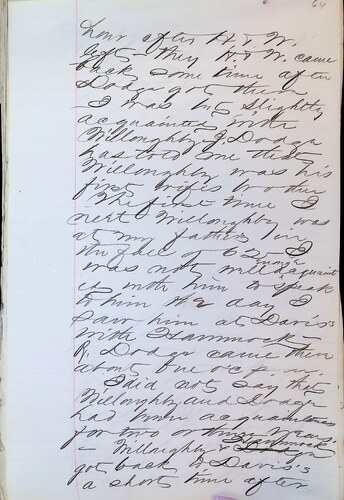 64
hour after H. & W.
left - they H. & W. came
back some time after
Dodge got there
I was but slightly
acquainted with
Willoughby J. Dodge
has told me that
Willoughby was his
first wife's brother
The first time I
met Willoughby was
at my father's in
the fall of I
was not well acquaint
ed with him to speak
to him the day I
saw him at Davis's
with Hammock -
R. Dodge came there
about one
I did not say that
Willoughby and Dodge
had been acquaintances
for two or three years.
- Willoughby & Hammock
got back to Davis's
a short time after